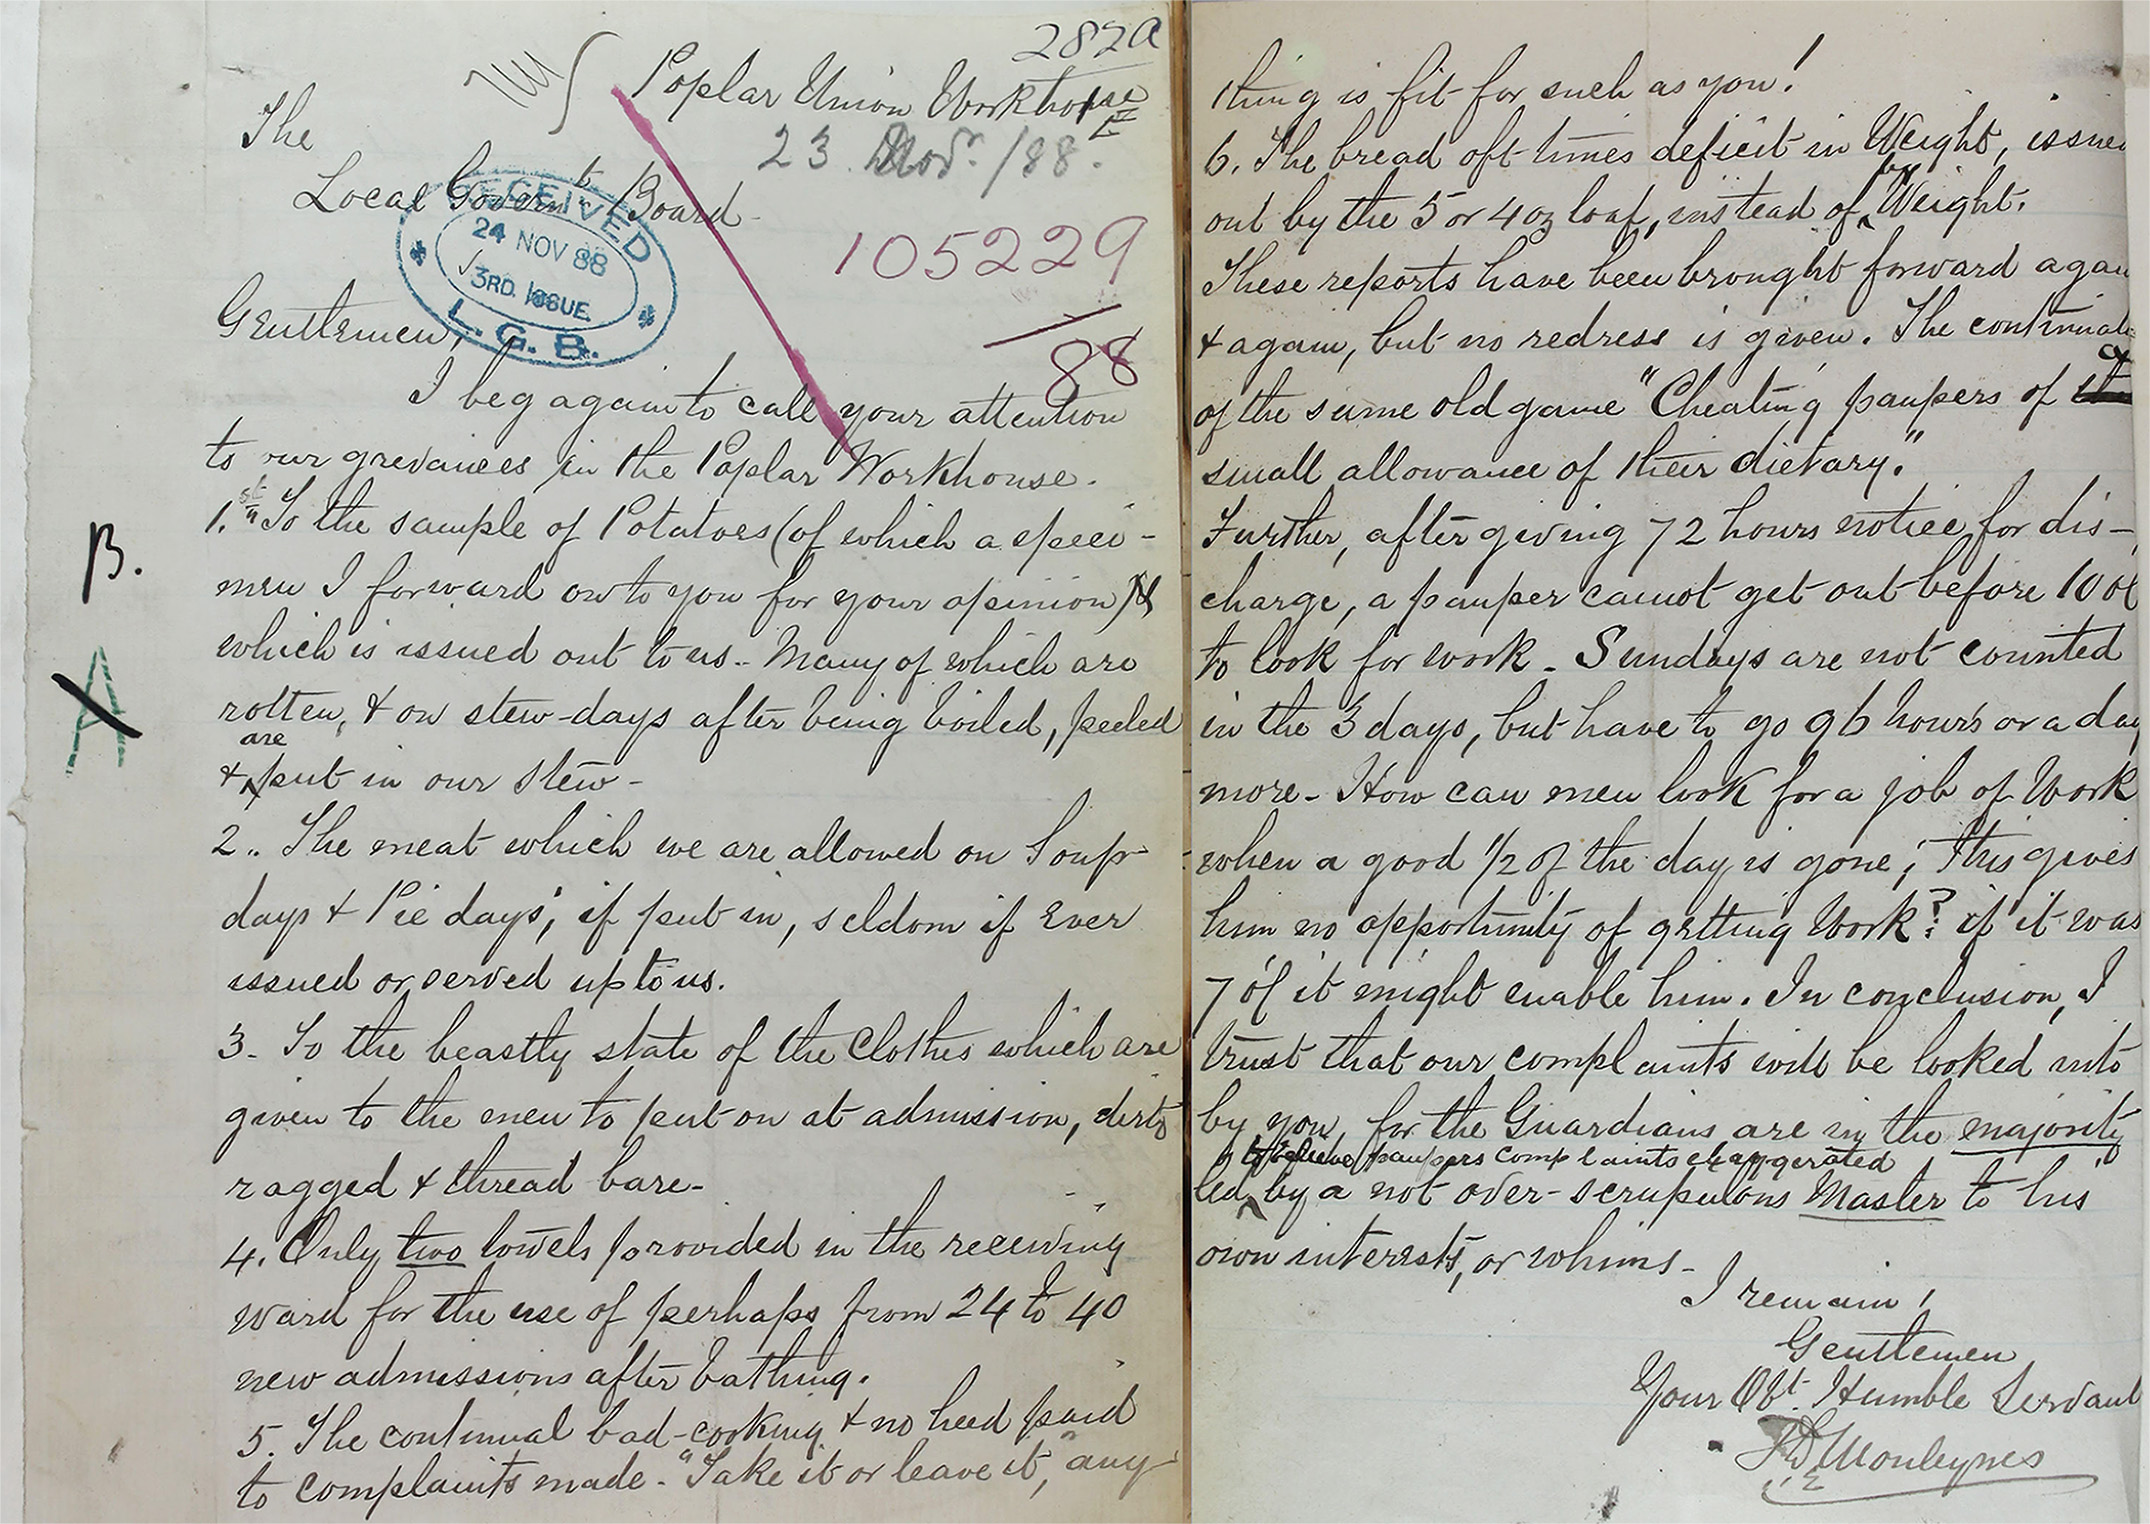 282A
Poplar Union Workhouse
E
23 Novr. /88.
The
Local Governt Board
RECEIVED
24 NOV 88
3RD. ISSUE
L. G. B.
105229
88
Gentlemen,
I beg again to call your attention
to our grevances in the Poplar Workhouse.
B.
A
1.st "To the sample of Potatoes (of which a speci-
men I forward on to you for your opinion)
which is issued out to us.. Many of which are
rotten, & on stew-days after being boiled, peeled
& are put in our stew-
2.. The meat which we are allowed on Soup
days & Pie days; if put in, seldom if Ever
issued or served up to us.
3- To the beastly state of the clothes which are
given to the men to put on at admission, dirty
ragged & thread bare-
4. Only two towels provided in the receiving
ward for the use of perhaps from 24 to 40
new admissions after bathing.
5. The continual bad-cooking & no heed paid
to complaints made- "Take it or leave it, any
thing is fit for such as you!
6. The bread oft-times deficit in Weight, issued
out by the 5 or 4 oz loaf, instead of by Weight.
These reports have been brought forward again
& again, but no redress is given. The continual
of the same old game "Cheating paupers of a
small allowance of their dietary."
Further, after giving 72 hours notice for dis-
charge, a pauper cannot get out before 10 oC
to look for work- Sundays are not counted
in the 3 days, but have to go 96 hours or a day
more- How can men look for a job of Work
when a good 1/2 of the day is gone; this gives
him no opportunity of getting Work? if it was
7 oC it might enable him. In conclusion, I
trust that our complaints will be looked into
by you, for the Guardians are in the majority
led to believe paupers complaints exaggerated by a not over-scrupulous Master to his
own interests, or whims-
I remain,
Gentlemen
Your Obt. Humble Servant